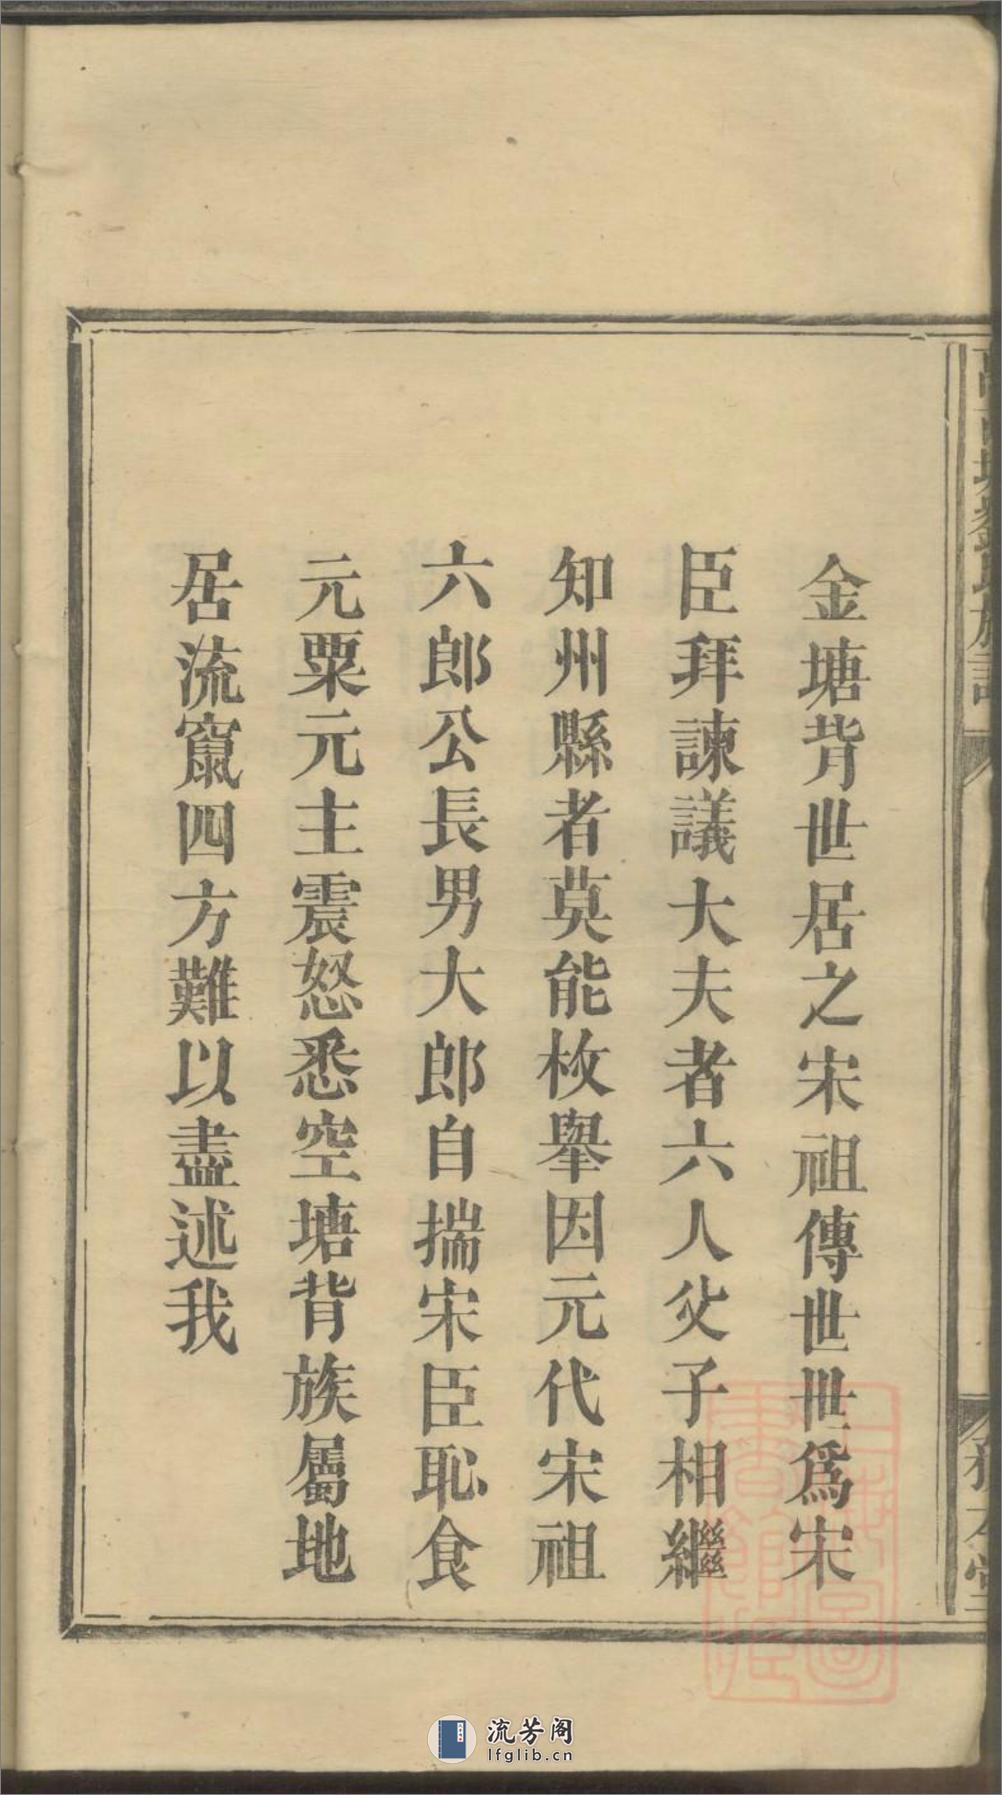 金塘背世居之宋祖傳世世爲宋
臣拜諫議大夫者六人父子相繼
知州縣者莫能枚舉因元代宋祖
六郎公長男大郎自揣宋臣恥食
元粟元主震怒悉空塘背族屬地
居流竄四方難以盡述我
流芳阁
lfglib.cn